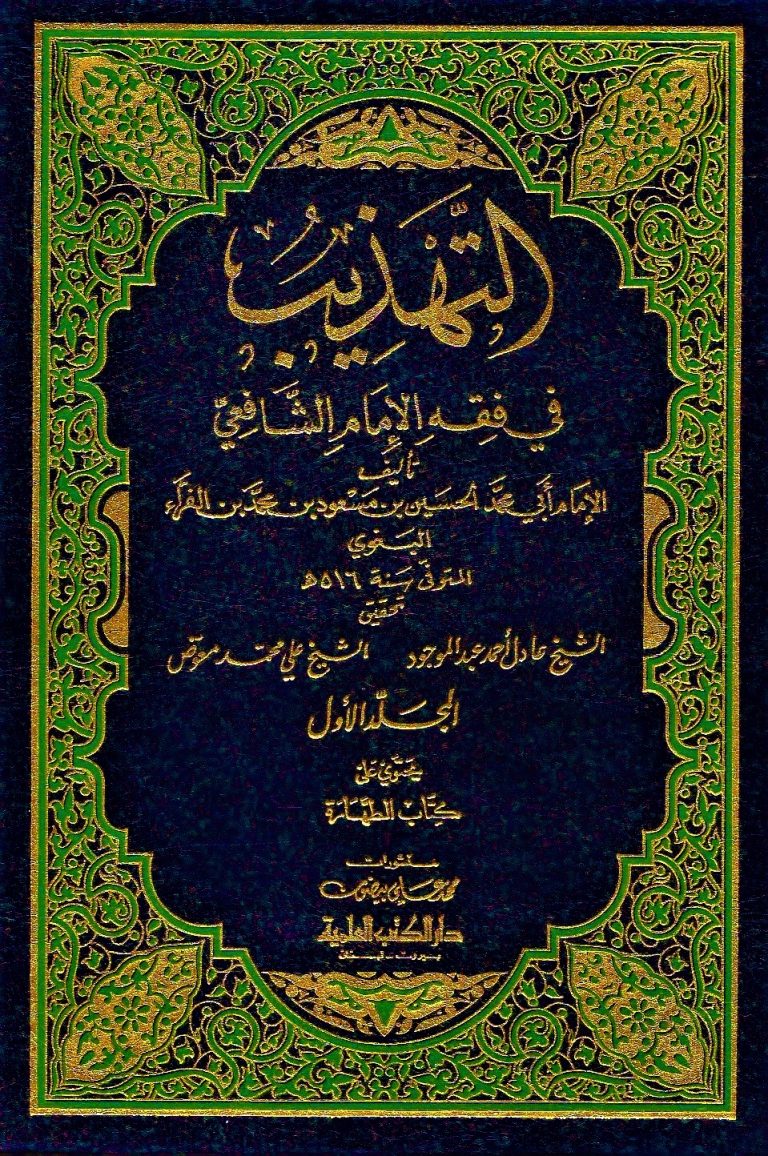 التَّهذِيبُ
في فِقهِ الإِمَامِ الشَّافِعِيِّ
تأليف
الإمَام أبي محمَّد الحسَين بن مَسعُود بن محمَّد بن الفرَّاء
البغوي
المتوفى سَنة ٥١٦ هـ
تحقيق
الشيخ عادل أحمد عبد الموجود الشيخ علي محمّد معوّض
المجَلّد الأول
يحتَوي عَلى
كِتَاب الطّهَارة
منشورات
محمد علي بيضون
دار الكتب العلمية
بيروت - لبنان